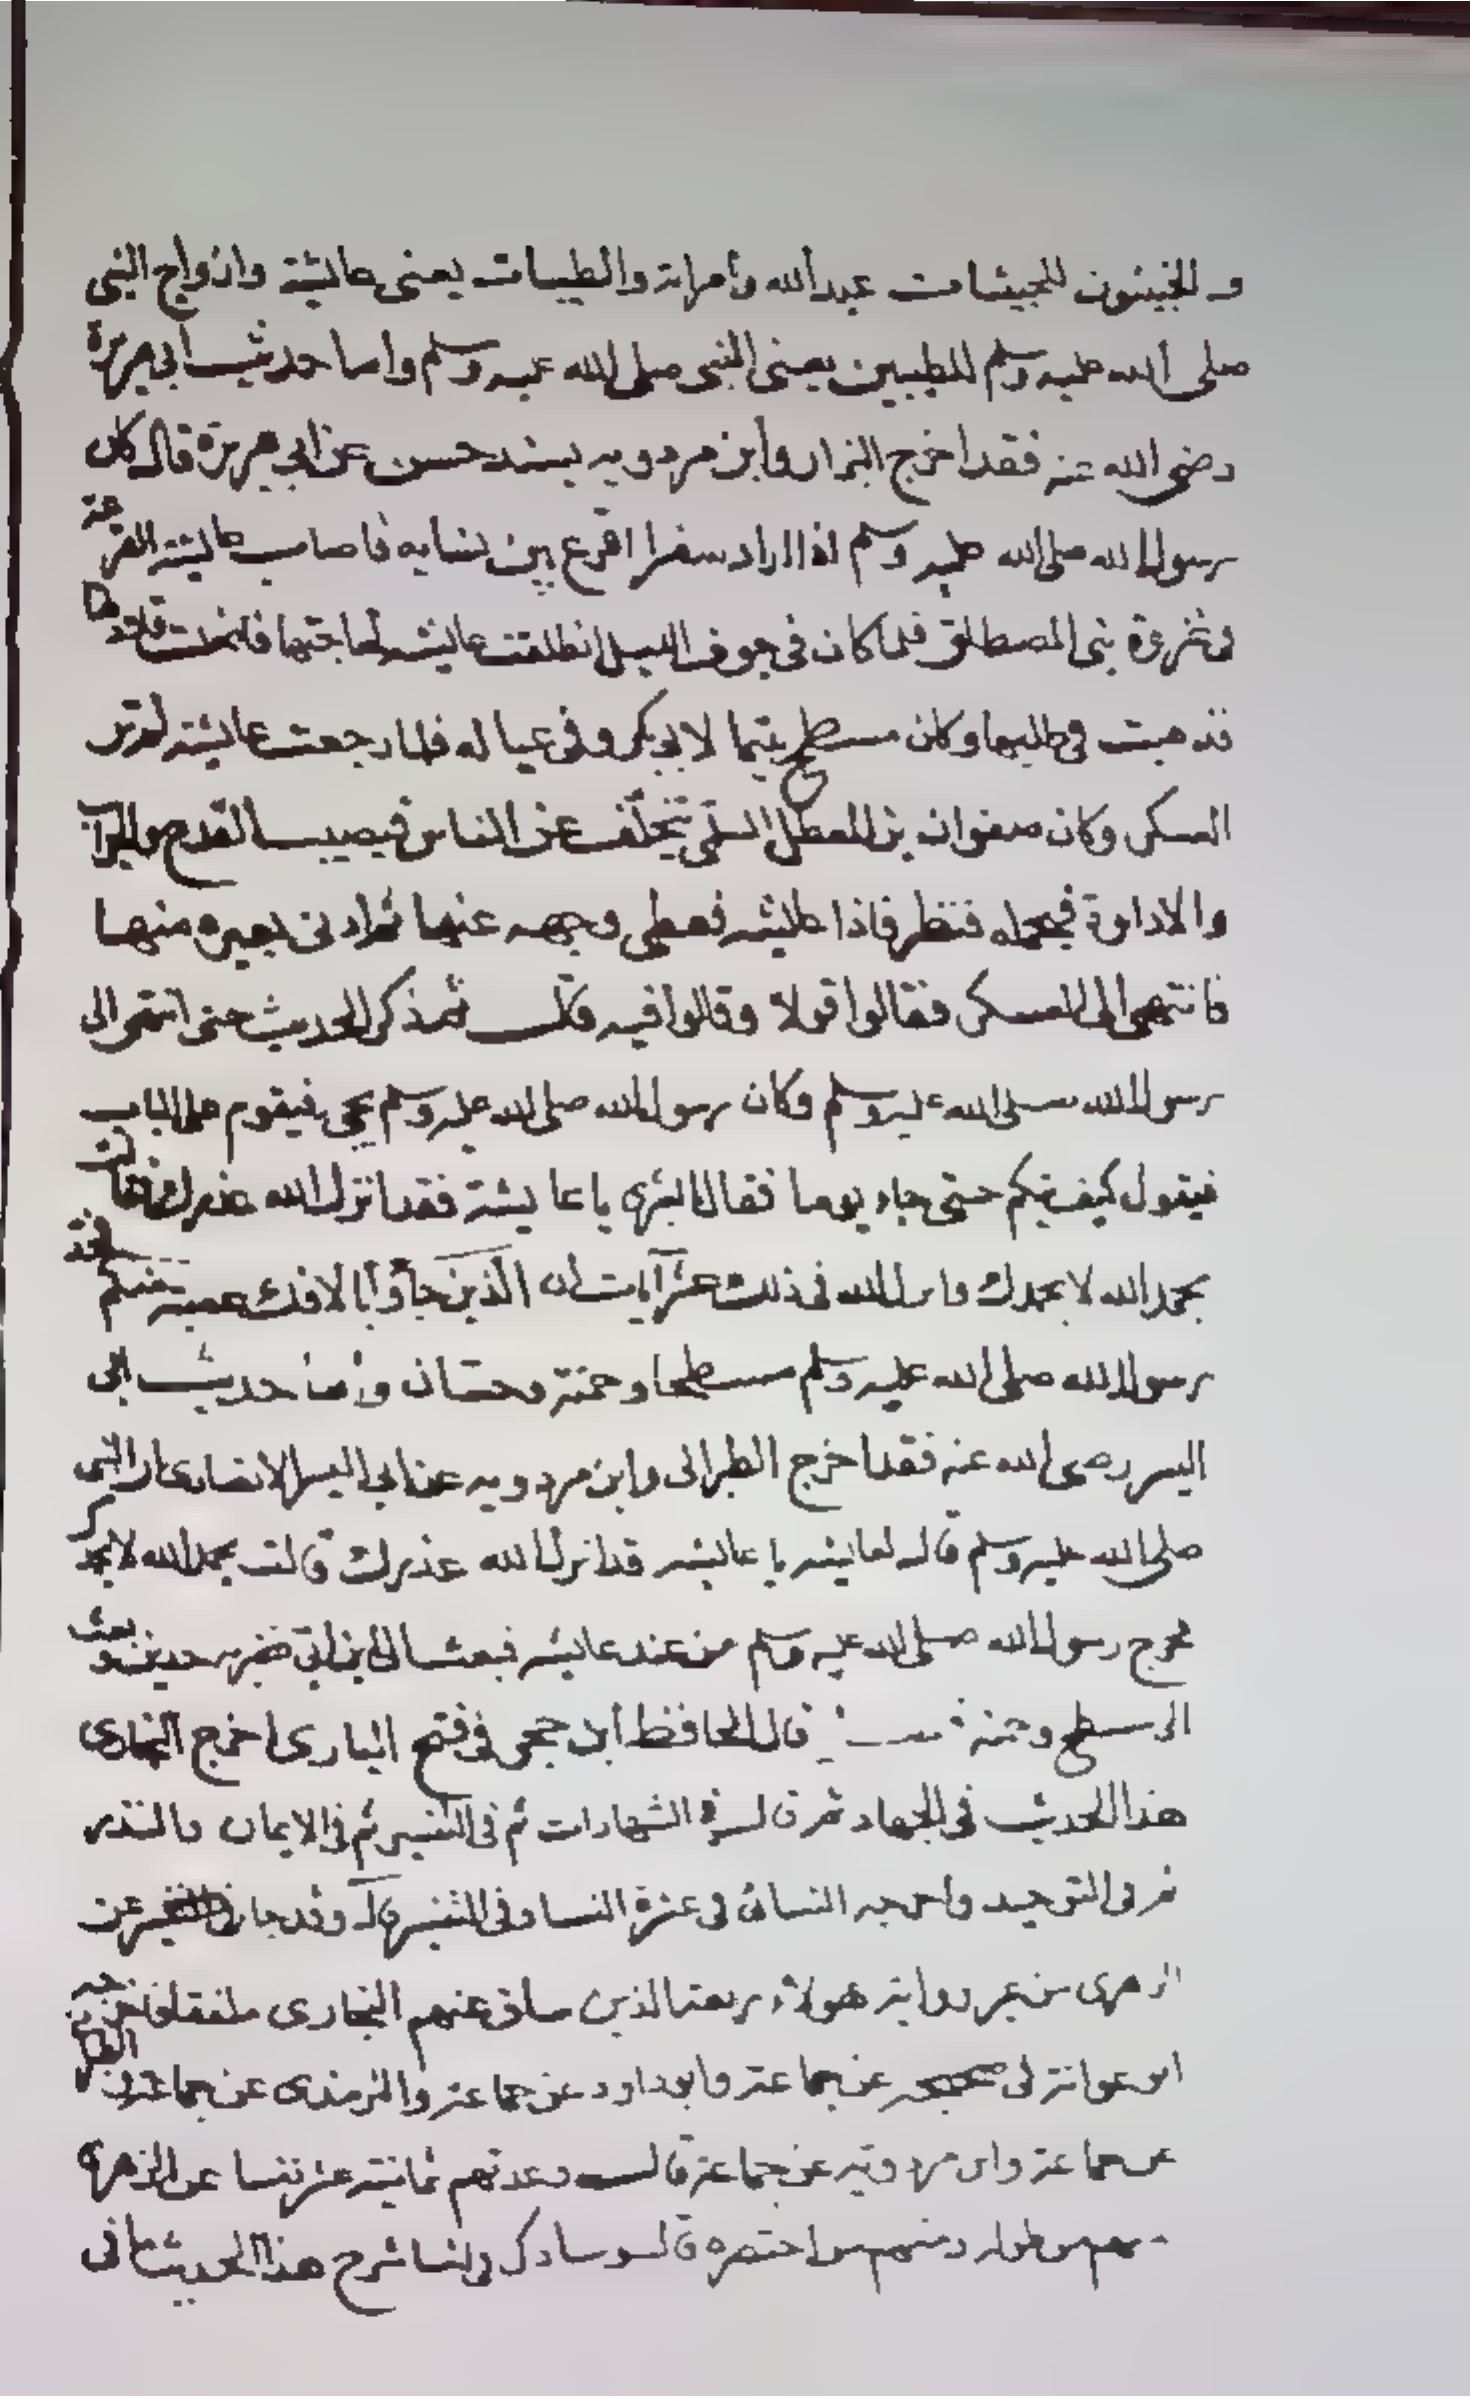 والخبيثون للخبيثات عبد الله وامراته والطيبات يعنى عايشة وازواج النبى
صلى الله عليه وسلم للطيبين يعنى النبى صلى الله عليه وسلم واما حديث ابى هريرة
رضى الله عنه فقد اخرج البزار وابن مردويه بسند حسن عن ابى هريرة قال كان
رسول الله صلى الله عليه وسلم اذا اراد سفرا اقرع بين نسايه فاصاب عايشة القرعة
فى غزوة بنى المصطلق فلما كان فى جوف الليل انطلقت عايشة لحاجتها فانحلت قلادتها
فذهبت فى طلبها وكان مسطح يتيما لابى بكر وفى عياله فلما رجعت عايشة لم تر
العسكر وكان صفوان بن المعطل السلمى يتخلف عن الناس فيصيب القدح والجراب
والاداوة فيحمله فنظر فاذا عايشة فغطى وجهه عنها ثم ادنى بعيره منها
فانتهى الى العسكر فقالوا قولا وقالوا فيه قال ثم ذكر الحديث حتى انتهى الى
رسول الله صلى الله عليه وسلم وكان رسول الله صلى الله عليه وسلم يجى فيقوم على الباب
فيقول كيف تيكم حتى جاء يوما فقال ابشرى يا عايشة فقد انزل الله عذرك فقالت
بحمد الله لا بحمدك وانزل الله فى ذلك عشر ايات ان الذين جاؤا بالافك عصبة منكم فحد
رسول الله صلى الله عليه وسلم مسطحا وحمنة وحسان واما حديث ابى
اليسر رضى الله عنه فقد اخرج الطبرانى وابن مردويه عن ابى اليسر الانصارى ان النبى
صلى الله عليه وسلم قال لعايشة يا عايشة قد انزل الله عذرك قالت بحمد الله لا بحمدك
فخرج رسول الله صلى الله عليه وسلم من عند عايشة فبعث الى ابن ابى فضربه حدين وبعث
الى مسطح وحمنة قال الحافظ ابن حجر فى فتح البارى اخرج البخارى
هذا الحديث فى الجهاد ثم فى الشهادات ثم فى التفسير ثم فى الايمان والنذر
ثم فى التوحيد واخرجه النسائى فى عشرة النسا وفى التفسير قال وقد جا عن
الزهرى من غير رواية هولاء الاربعة الذين ساق عنهم البخارى فاخرجه
ابو عوانة فى صحيحه عن جماعة وابو داود عن جماعة والترمذى عن جماعة
عن جماعة وابن مردويه عن جماعة قال وعدتهم ثمانية عشر نفسا عن الزهرى
منهم من طوله ومنهم من اختصره قال وساذكر فى اثنا شرح هذا الحديث ما فى